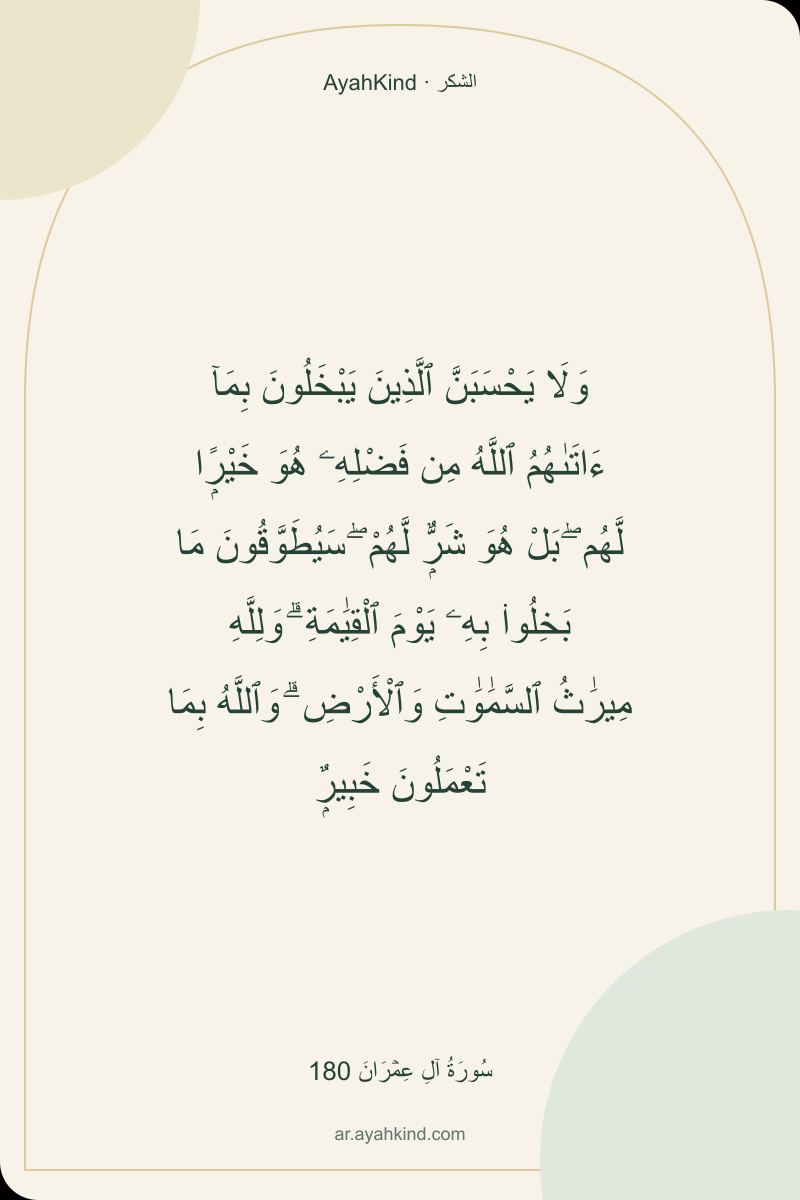 AyahKind · الشكر
وَلَا يَحْسَبَنَّ ٱلَّذِينَ يَبْخَلُونَ بِمَآ
ءَاتَىٰهُمُ ٱللَّهُ مِن فَضْلِهِۦ هُوَ خَيْرًۭا
لَّهُم ۖ بَلْ هُوَ شَرٌّۭ لَّهُمْ ۖ سَيُطَوَّقُونَ مَا
بَخِلُوا۟ بِهِۦ يَوْمَ ٱلْقِيَٰمَةِ ۗ وَلِلَّهِ
مِيرَٰثُ ٱلسَّمَٰوَٰتِ وَٱلْأَرْضِ ۗ وَٱللَّهُ بِمَا
تَعْمَلُونَ خَبِيرٌۭ
سُورَةُ آلِ عِمۡرَانَ 180
ar.ayahkind.com